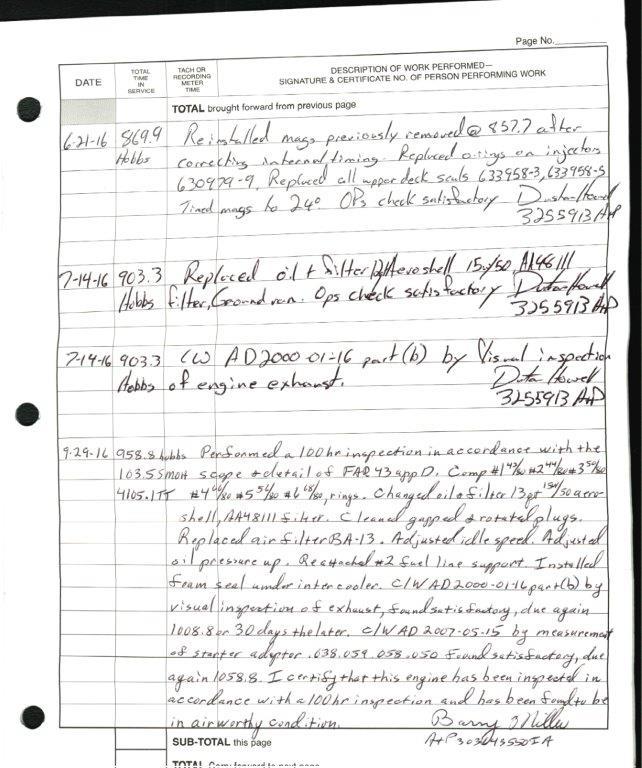 Page No.
DATE
TOTAL TIME IN SERVICE
TACH OR RECORDING METER TIME
DESCRIPTION OF WORK PERFORMED—
SIGNATURE & CERTIFICATE NO. OF PERSON PERFORMING WORK
TOTAL brought forward from previous page
6-21-16 869.9 Reinstalled mags previously removed @ 857.7 after
Hobbs correcting internal timing. Replaced o-rings on injectors
630979-9, Replaced all upper deck seals 633958-3, 633958-5
Timed mags to 24°. OPs check satisfactory
3255913 A+P
7-14-16 903.3 Replaced oil + filter Aeroshell 15w/50, AA48111
Hobbs filter, Ground run. Ops check satisfactory
3255913 A+P
7-14-16 903.3 C/W AD2000-01-16 part (b) by Visual inspection
Hobbs of engine exhaust.
3255913 A+P
9-29-16 958.8 hobbs Performed a 100hr inspection in accordance with the
103.5 SMOH scope + detail of FAR 43 app D. Comp #1 #2 #3
4105.1 TT #4 #5 #6, rings. Changed oil + filter 13 qt 15w/50 aero-
shell, AA48111 filter. Cleaned gapped + rotated plugs.
Replaced air filter BA-13. Adjusted idle speed. Adjusted
oil pressure up. Reattached #2 fuel line support. Installed
foam seal under intercooler. C/W AD2000-01-16 part (b) by
visual inspection of exhaust, found satisfactory, due again
1008.8 or 30 days the later. C/W AD 2007-05-15 by measurement
of starter adaptor .038 .059 .058 .050 Found satisfactory, due
again 1058.8. I certify that this engine has been inspected in
accordance with a 100hr inspection and has been found to be
in airworthy condition. Barry Miller
A+P IA
SUB-TOTAL this page
TOTAL Carry forward to next page